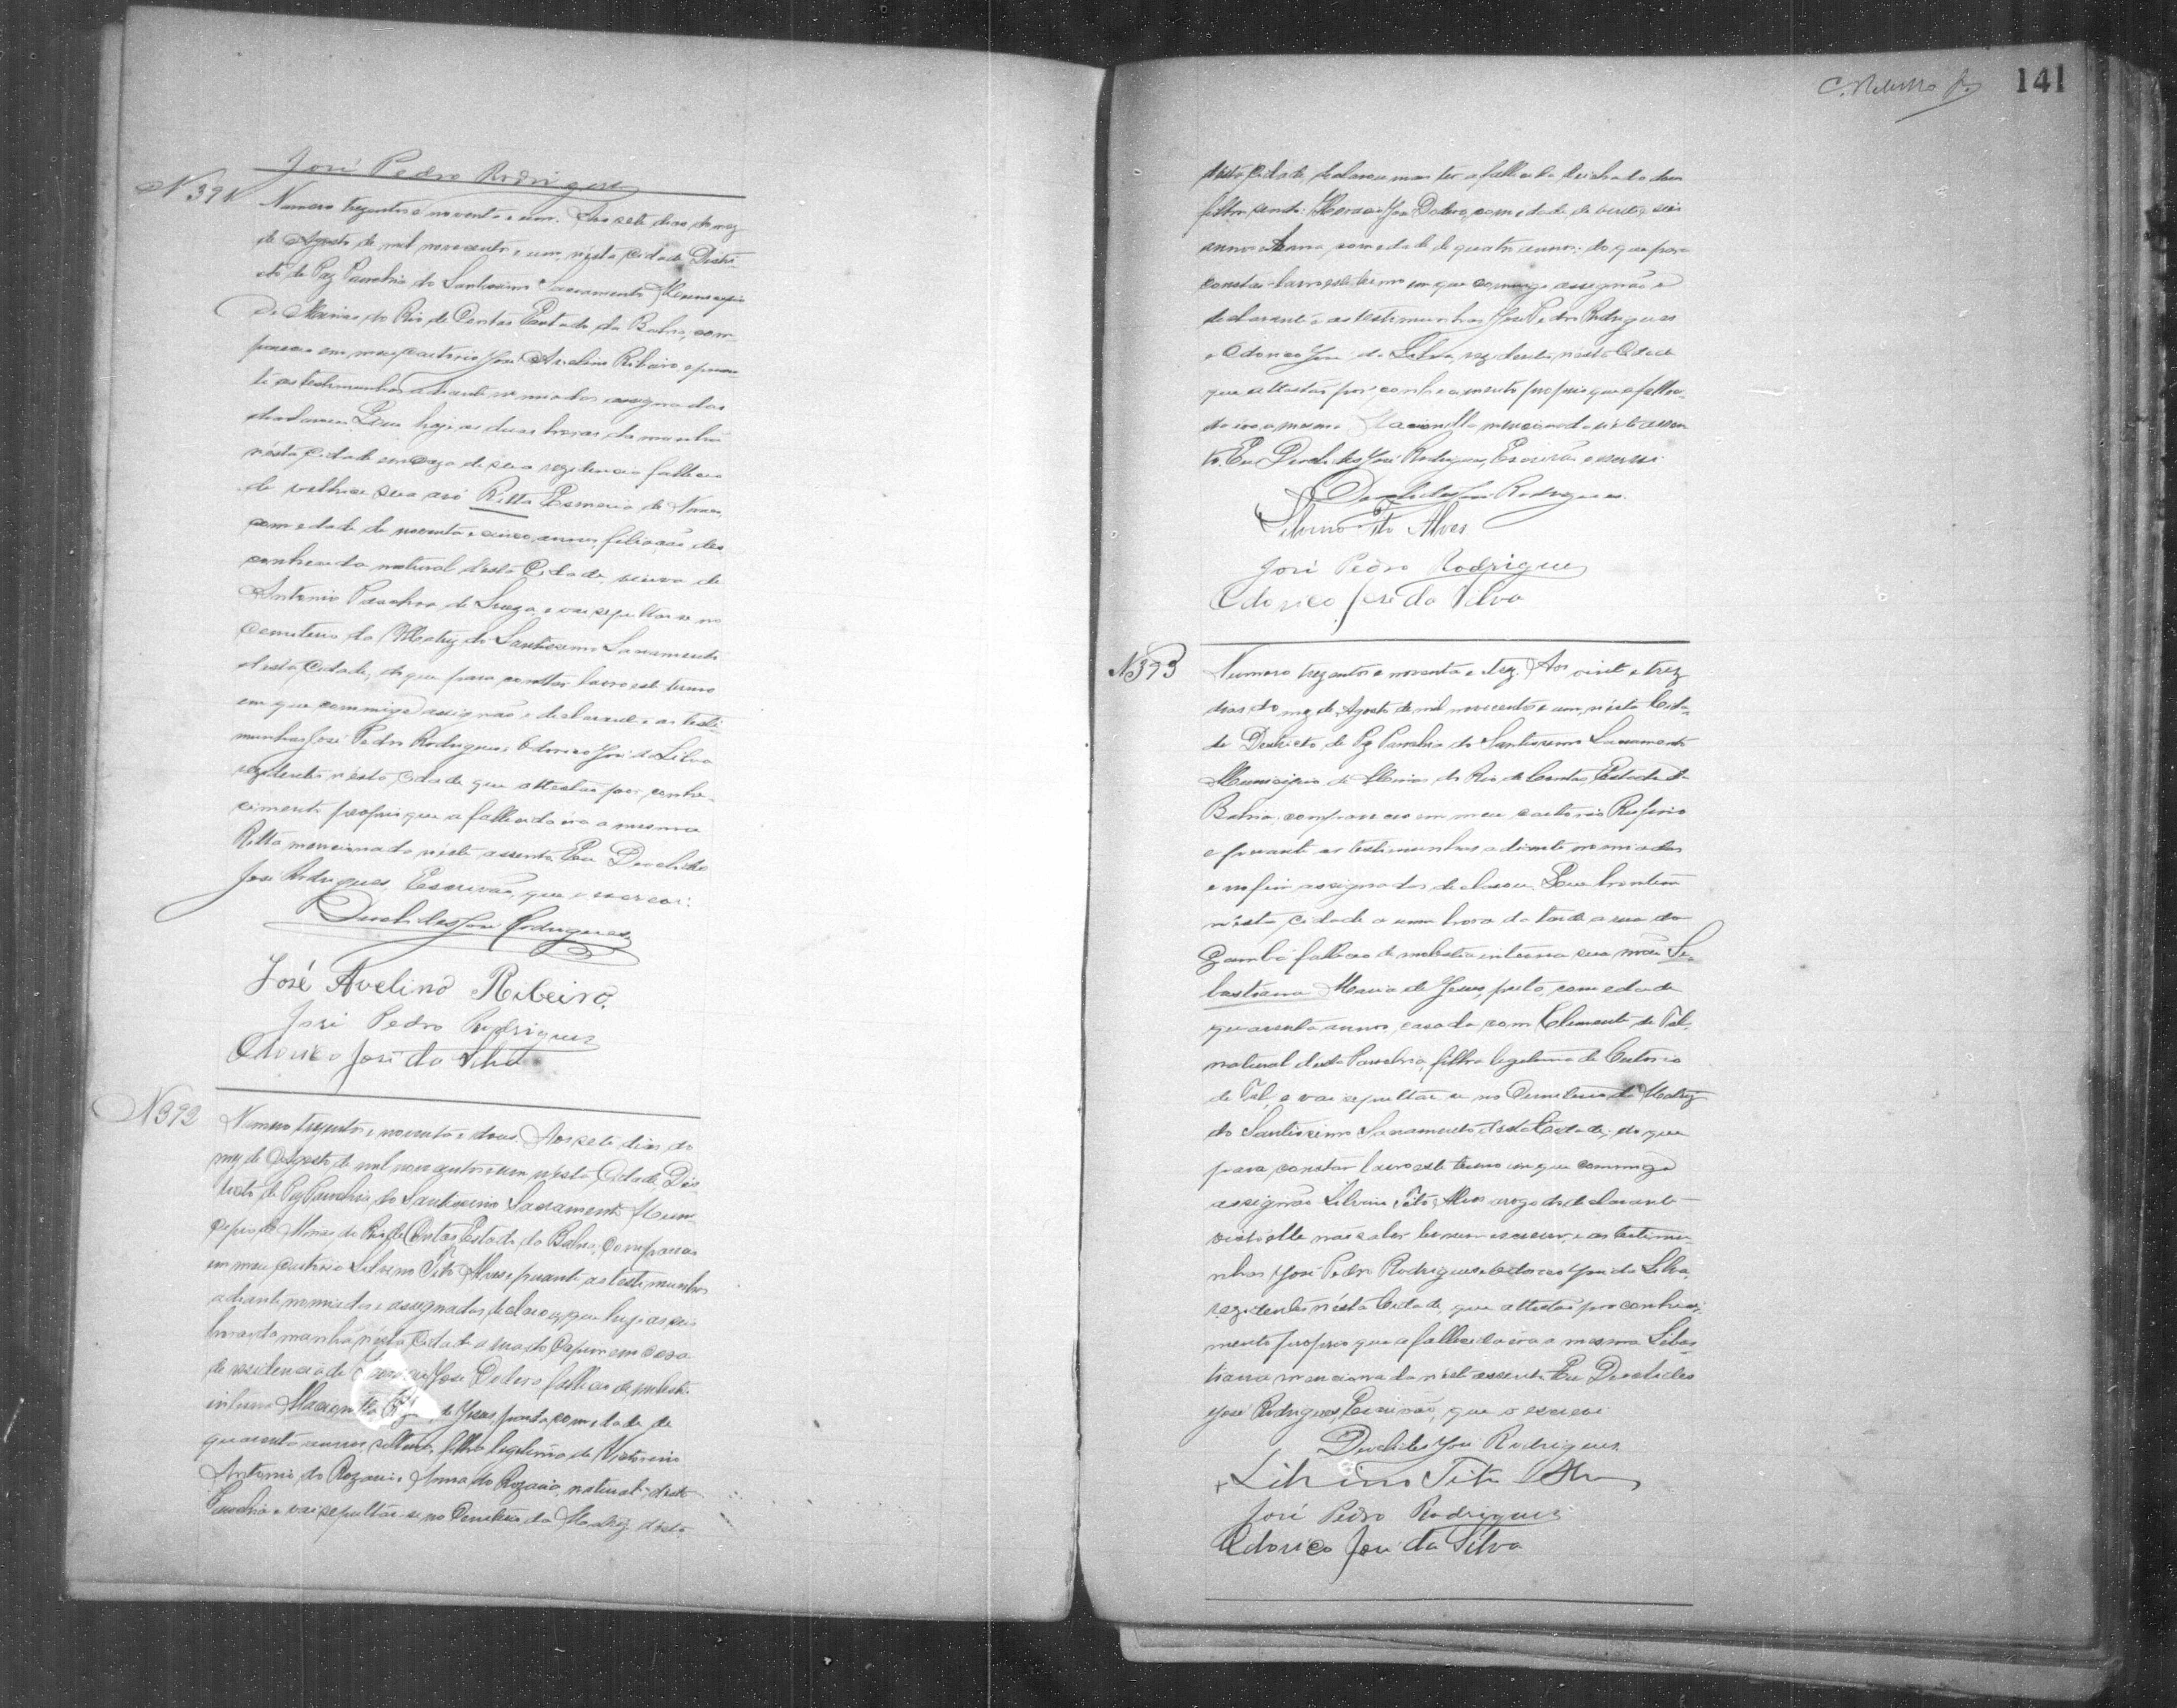 José Pedro Rodrigues
N 391
Numero trezentos e noventa e um. Aos sete dias do mez
de Agosto de mil novecentos e um, nésta cidade Distri-
cto de Paz Parochia do Santissimo Sacramento Municipio
de Minas do Rio de Contas Estado da Bahia, com-
pareceu em meu cartorio José Avelino Ribeiro e peran-
te as testimunhas adiante nomiadas assignadas
declarou: Que hoje as duas horas da manhã
nésta cidade em caza de sua rezidencia falleceu
de velhice sua avó Ritta Esmeria de Novaes,
com edade de noventa e cinco annos, filiação des-
conhecida natural désta Cidade, viuva de
Antonio Parahna de Souza, e vae sepultar-se no
Cemiterio da Matriz do Santissimo Sacramento
désta Cidade; do que para constar lavro este termo
em que commigo assignão o declarante e as testi-
munhas José Pedro Rodrigues e Odorico José da Silva
rezidentes nésta cidade que attestão por conhe-
cimento proprio que a fallecida era a mesma
Ritta mencionada néste assento. Eu Deoclides
José Rodrigues, Escrivão, que o escrevi.
Deoclides José Rodrigues
José Avelino Ribeiro.
José Pedro Rodrigues
Odorico José da Silva
N 392
Numero trezentos e noventa e dous. Aos sete dias do
mez de Agosto de mil novecentos e um nésta Cidade Dis-
tricto de Paz Parochia do Santissimo Sacramento Muni-
cipio de Minas do Rio de Contas Estado da Bahia, compareceu
em meu cartorio Silvino Tito Alves e perante as testimunhas
adiante nomiadas e assignadas declarou, que hoje as seis
horas da manhã nésta Cidade a rua do em casa
de residencia de José Dultro falleceu de molestia
interna de Jesus, parda com edade de
quarenta annos, solteira, filha legitima de Victorino
Antonio do Rozario e Anna do Rozario, natural désta
Parochia e vae sepultar-se no Cemiterio da Matriz désta
141
désta Cidade, declarou mais ter a fallecida deichado dous
filhos sendo: José Dultro, com edade de vinte e seis
annos e Anna, com edade de quatro annos; do que para
constar lavro este termo em que commigo assignão o
declarante e as testimunhas José Pedro Rodrigues
e Odorico José da Silva, rezidentes nésta Cidade
que attestão por conhecimento proprio que a falleci-
da era a mesma mencionada néste assen-
to. Eu Deoclides José Rodrigues, Escrivão o escrevi.
Deoclides José Rodrigues
Silvino Tito Alves
José Pedro Rodrigues
Odorico José da Silva
N 393
Numero trezentos e noventa e trez. Aos vinte e trez
dias do mez de Agosto de mil novecentos e um, nésta Cida-
de Districto de Paz Parochia do Santissimo Sacramento
Municipio de Minas do Rio de Contas, Estado da
Bahia, compareceu em meu cartorio Rufino
e perante as testimunhas adiante nomiadas
e no fim assignadas declarou. Que hontem
nésta cidade a uma hora da tarde a rua do
falleceu de molestia interna sua mãe Se-
bastiana Maria de Jesus, preta, com edade
quarenta annos, casada com Clemente de Tal,
natural désta Parochia, filha legitima de
de Tal, e vae sepultar-se no Cemiterio da Matriz
do Santissimo Sacramento désta Cidade; do que
para constar lavro este termo em que commigo
assignão Silvino Tito Alves arogo do declarante
visto elle não saber ler nem escrever, e as testimu-
nhas José Pedro Rodrigues e Odorico José da Silva,
rezidentes nésta Cidade, que attestão por conheci-
mento proprio que a fallecida era a mesma Sebas-
tiana mencionada néste assento. Eu Deoclides
José Rodrigues, Escrivão, que o escrevi.
Deoclides José Rodrigues
Silvino Tito Alves
José Pedro Rodrigues
Odorico José da Silva